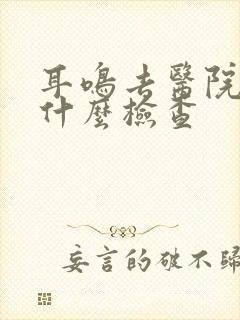 耳鳴去醫院
什麼檢查
妄言的破不歸